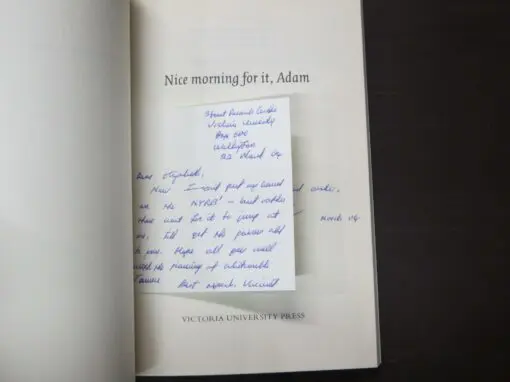 Nice morning for it, Adam
Stout Research Centre
Victoria University
Box 600
Wellington
22 March 04
Dear
Now I can't put my hand
on the NYRB! – but rather
than wait for it to jump at
me, I'll get the
to you. Hope all goes well
with the
Best Vincent
March 04
VICTORIA UNIVERSITY PRESS